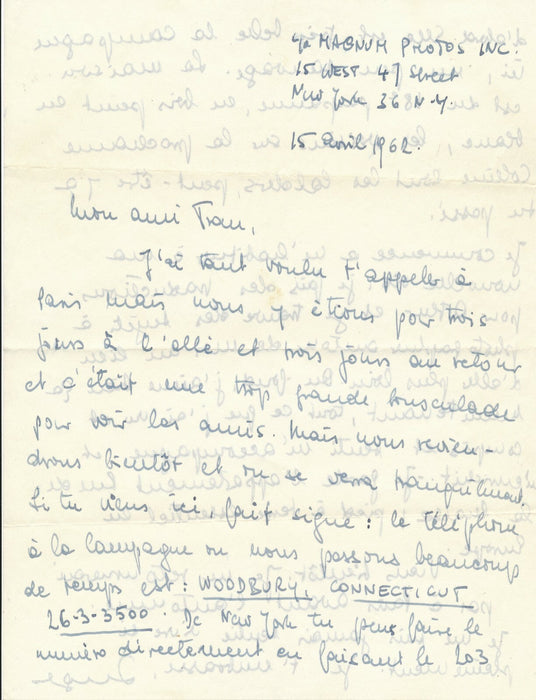 c/o MAGNUM PHOTOS INC.
15 WEST 47 Street
New York 36 N.Y.
15 avril 1962.
Mon ami Tran,
J'ai tant voulu t'appeler à
Paris mais nous y étions pour trois
jours à l'allé et trois jours au retour
et c'était une trop grande bousculade
pour voir les amis. Mais nous revien-
drons bientôt et on se verra tranquilment.
Si tu viens ici, fait signe : le téléphone
à la campagne ou nous passons beaucoup
de temps est : WOODBURY, CONNECTICUT
26-3-3500. De New York tu peux faire le
numéro directement en faisant le 203.